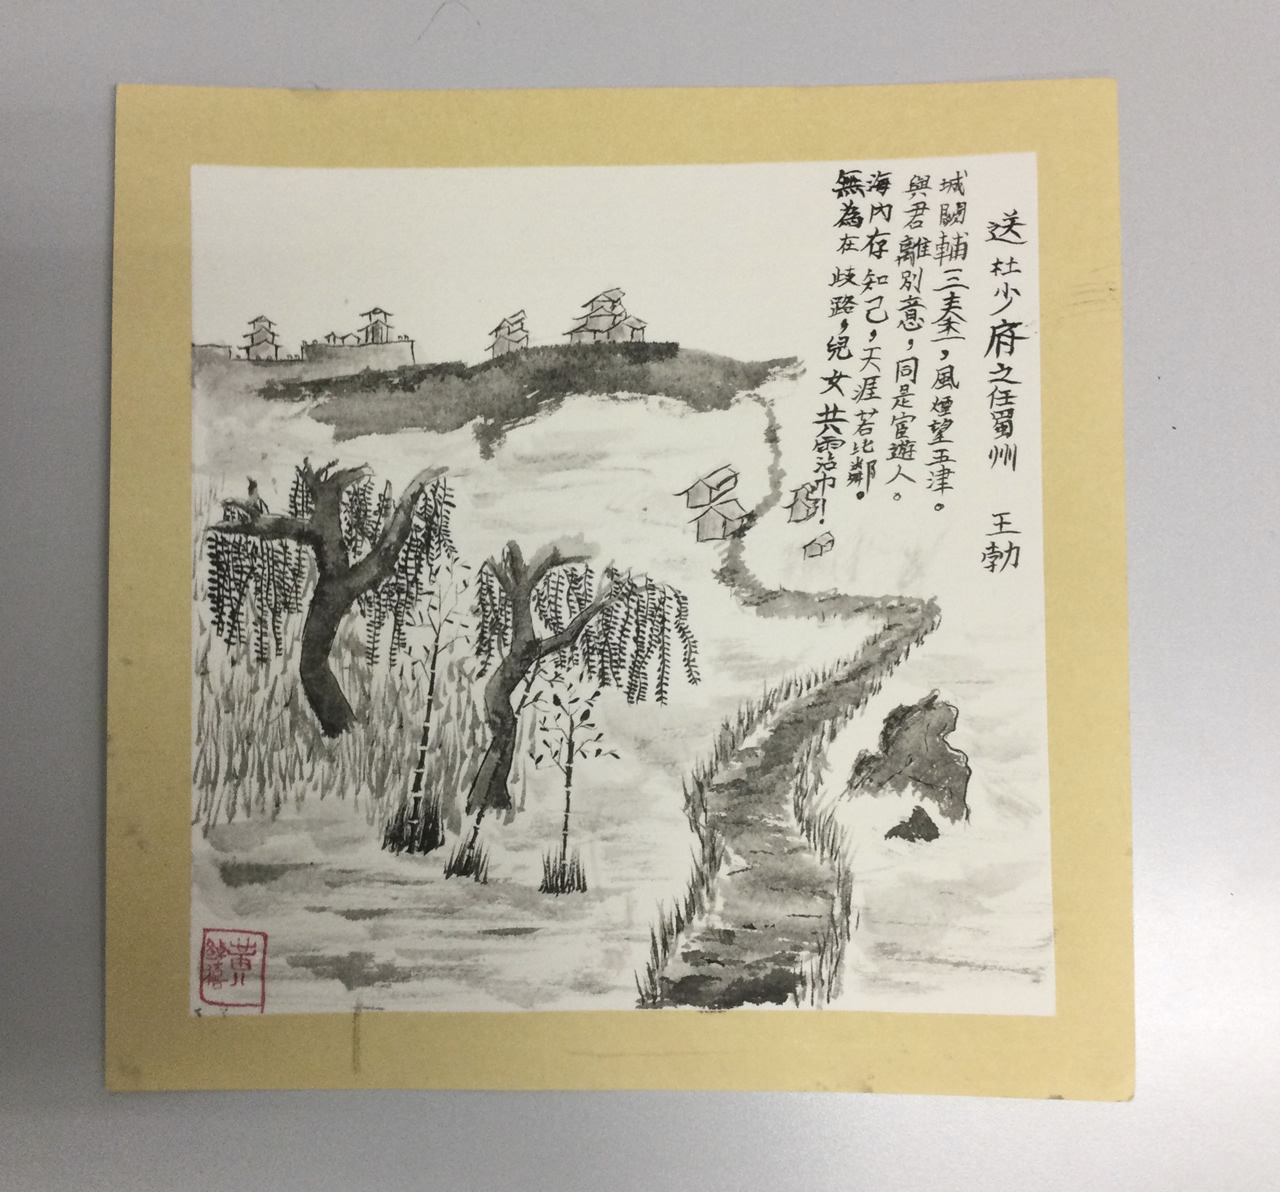 送杜少府之任蜀州 王勃
城闕輔三秦，風煙望五津。
與君離別意，同是宦遊人。
海內存知己，天涯若比鄰。
無為在歧路，兒女共霑巾！
黃